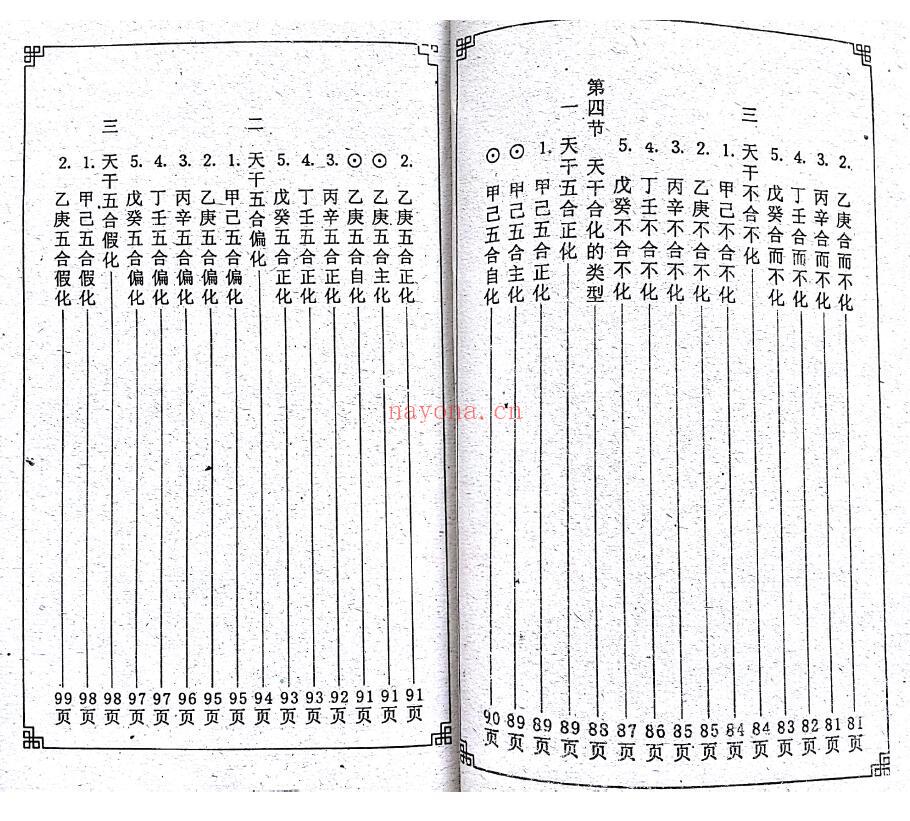 2. 乙庚合而不化 81页
3. 丙辛合而不化 81页
4. 丁壬合而不化 82页
5. 戊癸合而不化 83页
三 天干不合不化 84页
1. 甲己不合不化 84页
2. 乙庚不合不化 85页
3. 丙辛不合不化 85页
4. 丁壬不合不化 86页
5. 戊癸不合不化 87页
第四节 天干合化的类型 88页
一 天干五合正化 89页
1. 甲己五合正化 89页
⊙ 甲己五合主化 89页
⊙ 甲己五合自化 90页
2. 乙庚五合正化 91页
⊙ 乙庚五合主化 91页
⊙ 乙庚五合自化 91页
3. 丙辛五合正化 92页
4. 丁壬五合正化 93页
5. 戊癸五合正化 93页
二 天干五合偏化 94页
1. 甲己五合偏化 95页
2. 乙庚五合偏化 95页
3. 丙辛五合偏化 96页
4. 丁壬五合偏化 97页
5. 戊癸五合偏化 97页
三 天干五合假化 98页
1. 甲己五合假化 98页
2. 乙庚五合假化 99页
nayona.cn